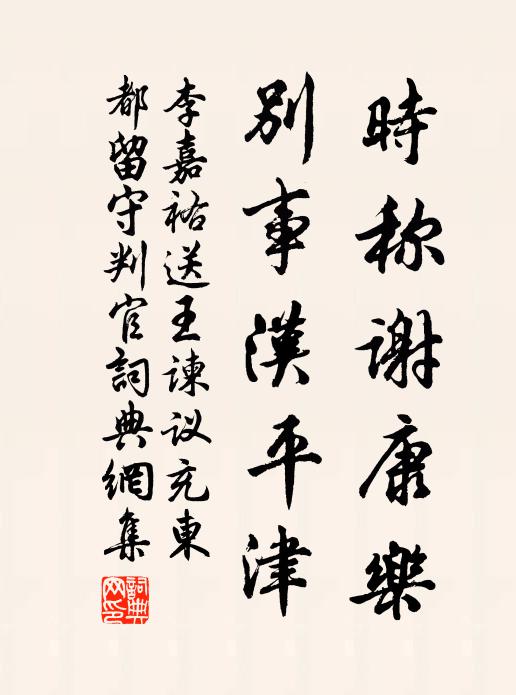 時称謝康樂
别事漢平津
李嘉祐送王諫议充東
都留守判官詞典網集
詞典网印